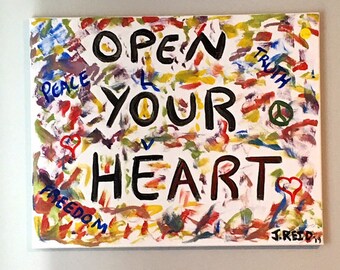 OPEN
TRUTH
PEACE
YOUR
HEART
FREEDOM
J. REID